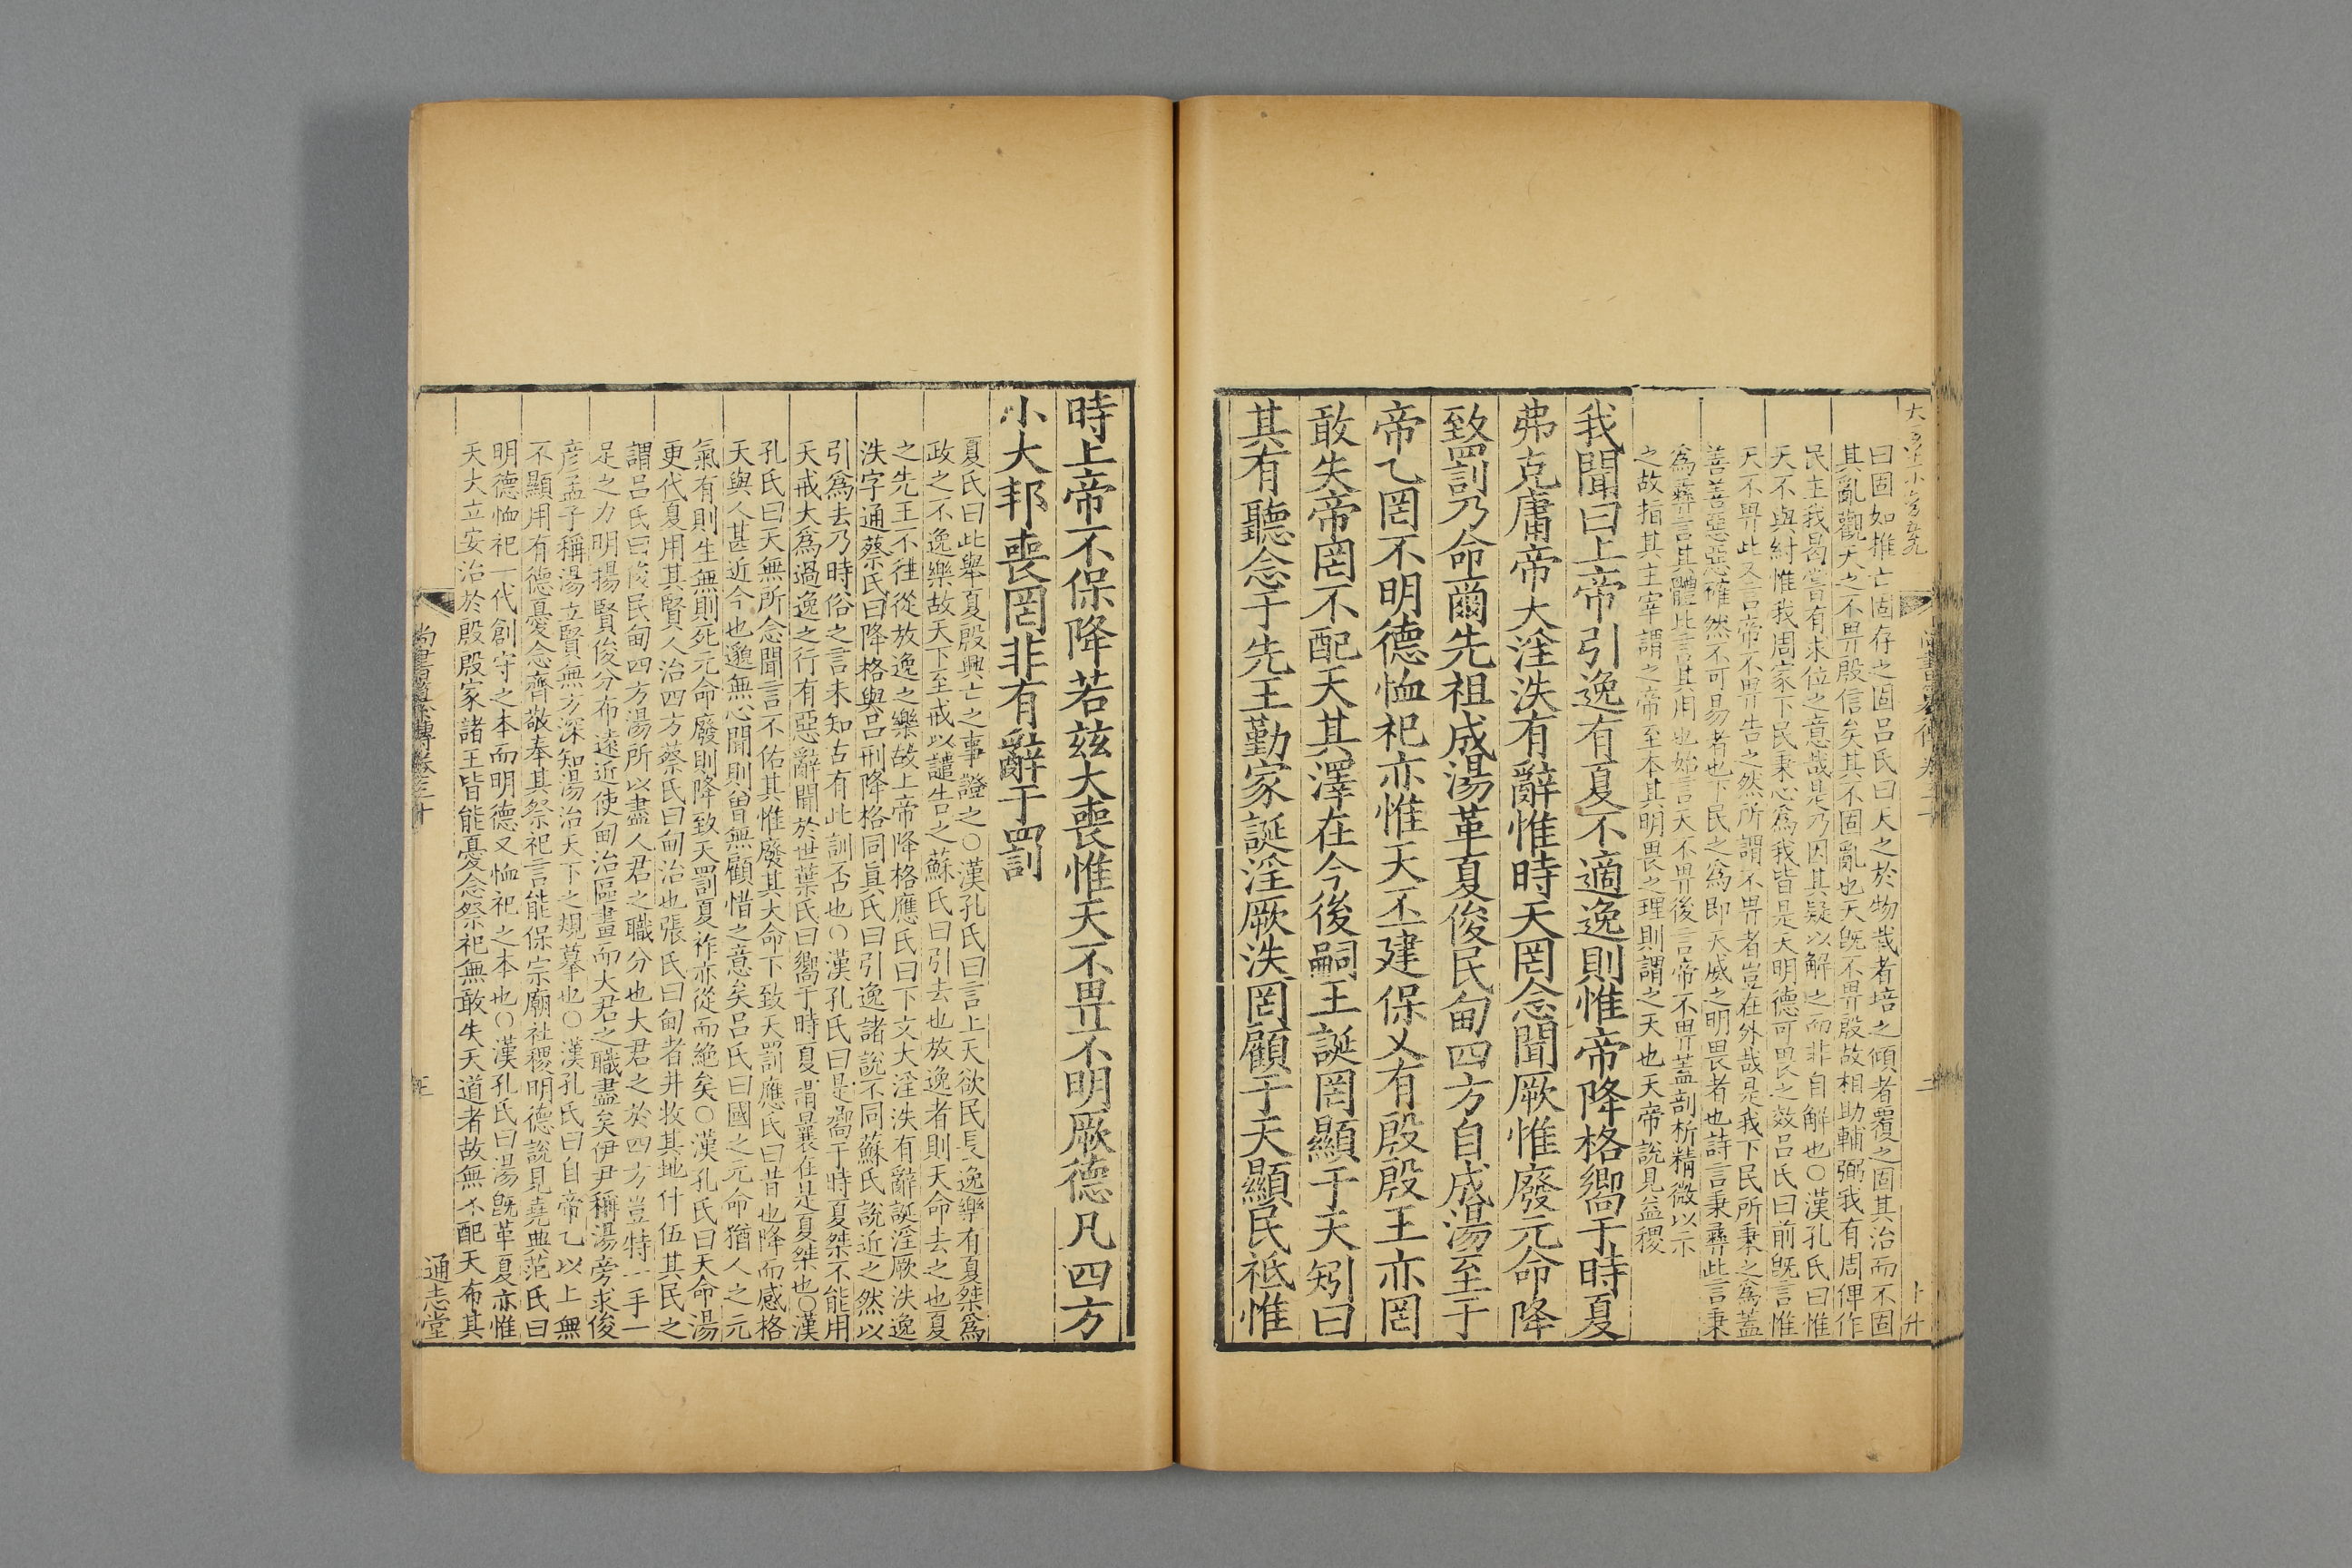 曰固如推亡固存之固吕氏曰天之於物栽者培之傾者覆之固其治而不固
其亂觀天之不畀殷信矣其不固亂也天旣不畀殷故相助輔弼我有周俾作
民主我曷嘗有求位之意哉是乃因其疑以解之而非自解也○漢孔氏曰惟
天不與紂惟我周家下民秉心爲我皆是天明德可畏之效吕氏曰前旣言惟
天不畀此又言帝不畀告之然所謂不畀者豈在外哉是我下民所秉之爲蓋
善善惡惡確然不可易者也下民之爲即天威之明畏者也詩言秉彝此言秉
爲彝言其體此言其用也始言天不畀後言帝不畀蓋剖析精微以示
之故指其主宰謂之帝至本其明畏之理則謂之天也天帝說見益稷
我聞曰上帝引逸有夏不適逸則惟帝降格嚮于時夏
弗克庸帝大淫泆有辭惟時天罔念聞厥惟廢元命降
致罰乃命爾先祖成湯革夏俊民甸四方自成湯至于
帝乙罔不明德恤祀亦惟天丕建保乂有殷殷王亦罔
敢失帝罔不配天其澤在今後嗣王誕罔顯于天矧曰
其有聽念于先王勤家誕淫厥泆罔顧于天顯民祗惟
時上帝不保降若兹大喪惟天不畀不明厥德凡四方
小大邦喪罔非有辭于罰
夏氏曰此舉夏殷興亡之事證之○漢孔氏曰言上天欲民長逸樂有夏桀爲
政之不逸樂故天下至戒以譴告之蘇氏曰引去也放逸者則天命去之也夏
之先王不徃從放逸之樂故上帝降格應氏曰下文大淫泆有辭誕淫厥泆逸
泆字通蔡氏曰降格與吕刑降格同眞氏曰引逸諸說不同蘇氏說近之然以
引爲去乃時俗之言未知古有此訓否也○漢孔氏曰是嚮于時夏桀不能用
天戒大爲過逸之行有惡辭聞於世葉氏曰嚮于時夏謂曩在是夏桀也○漢
孔氏曰天無所念聞言不佑其惟廢其大命下致天罰應氏曰昔也降而感格
天與人甚近今也邈無心聞則曾無顧惜之意矣吕氏曰國之元命猶人之元
氣有則生無則死元命廢則降致天罰夏祚亦從而絶矣○漢孔氏曰天命湯
更代夏用其賢人治四方蔡氏曰甸治也張氏曰甸者井牧其地什伍其民之
謂吕氏曰俊民甸四方湯所以盡人君之職分也大君之於四方豈特一手一
足之力明揚賢俊分布遠近使甸治區畫而大君之職盡矣伊尹稱湯旁求俊
彦孟子稱湯立賢無方深知湯治天下之規摹也○漢孔氏曰自帝乙以上無
不顯用有德憂念齊敬奉其祭祀言能保宗廟社稷明德說見堯典范氏曰
明德恤祀一代創守之本而明德又恤祀之本也○漢孔氏曰湯旣革夏亦惟
天大立安治於殷殷家諸王皆能憂念祭祀無敢失天道者故無不配天布其
通志堂